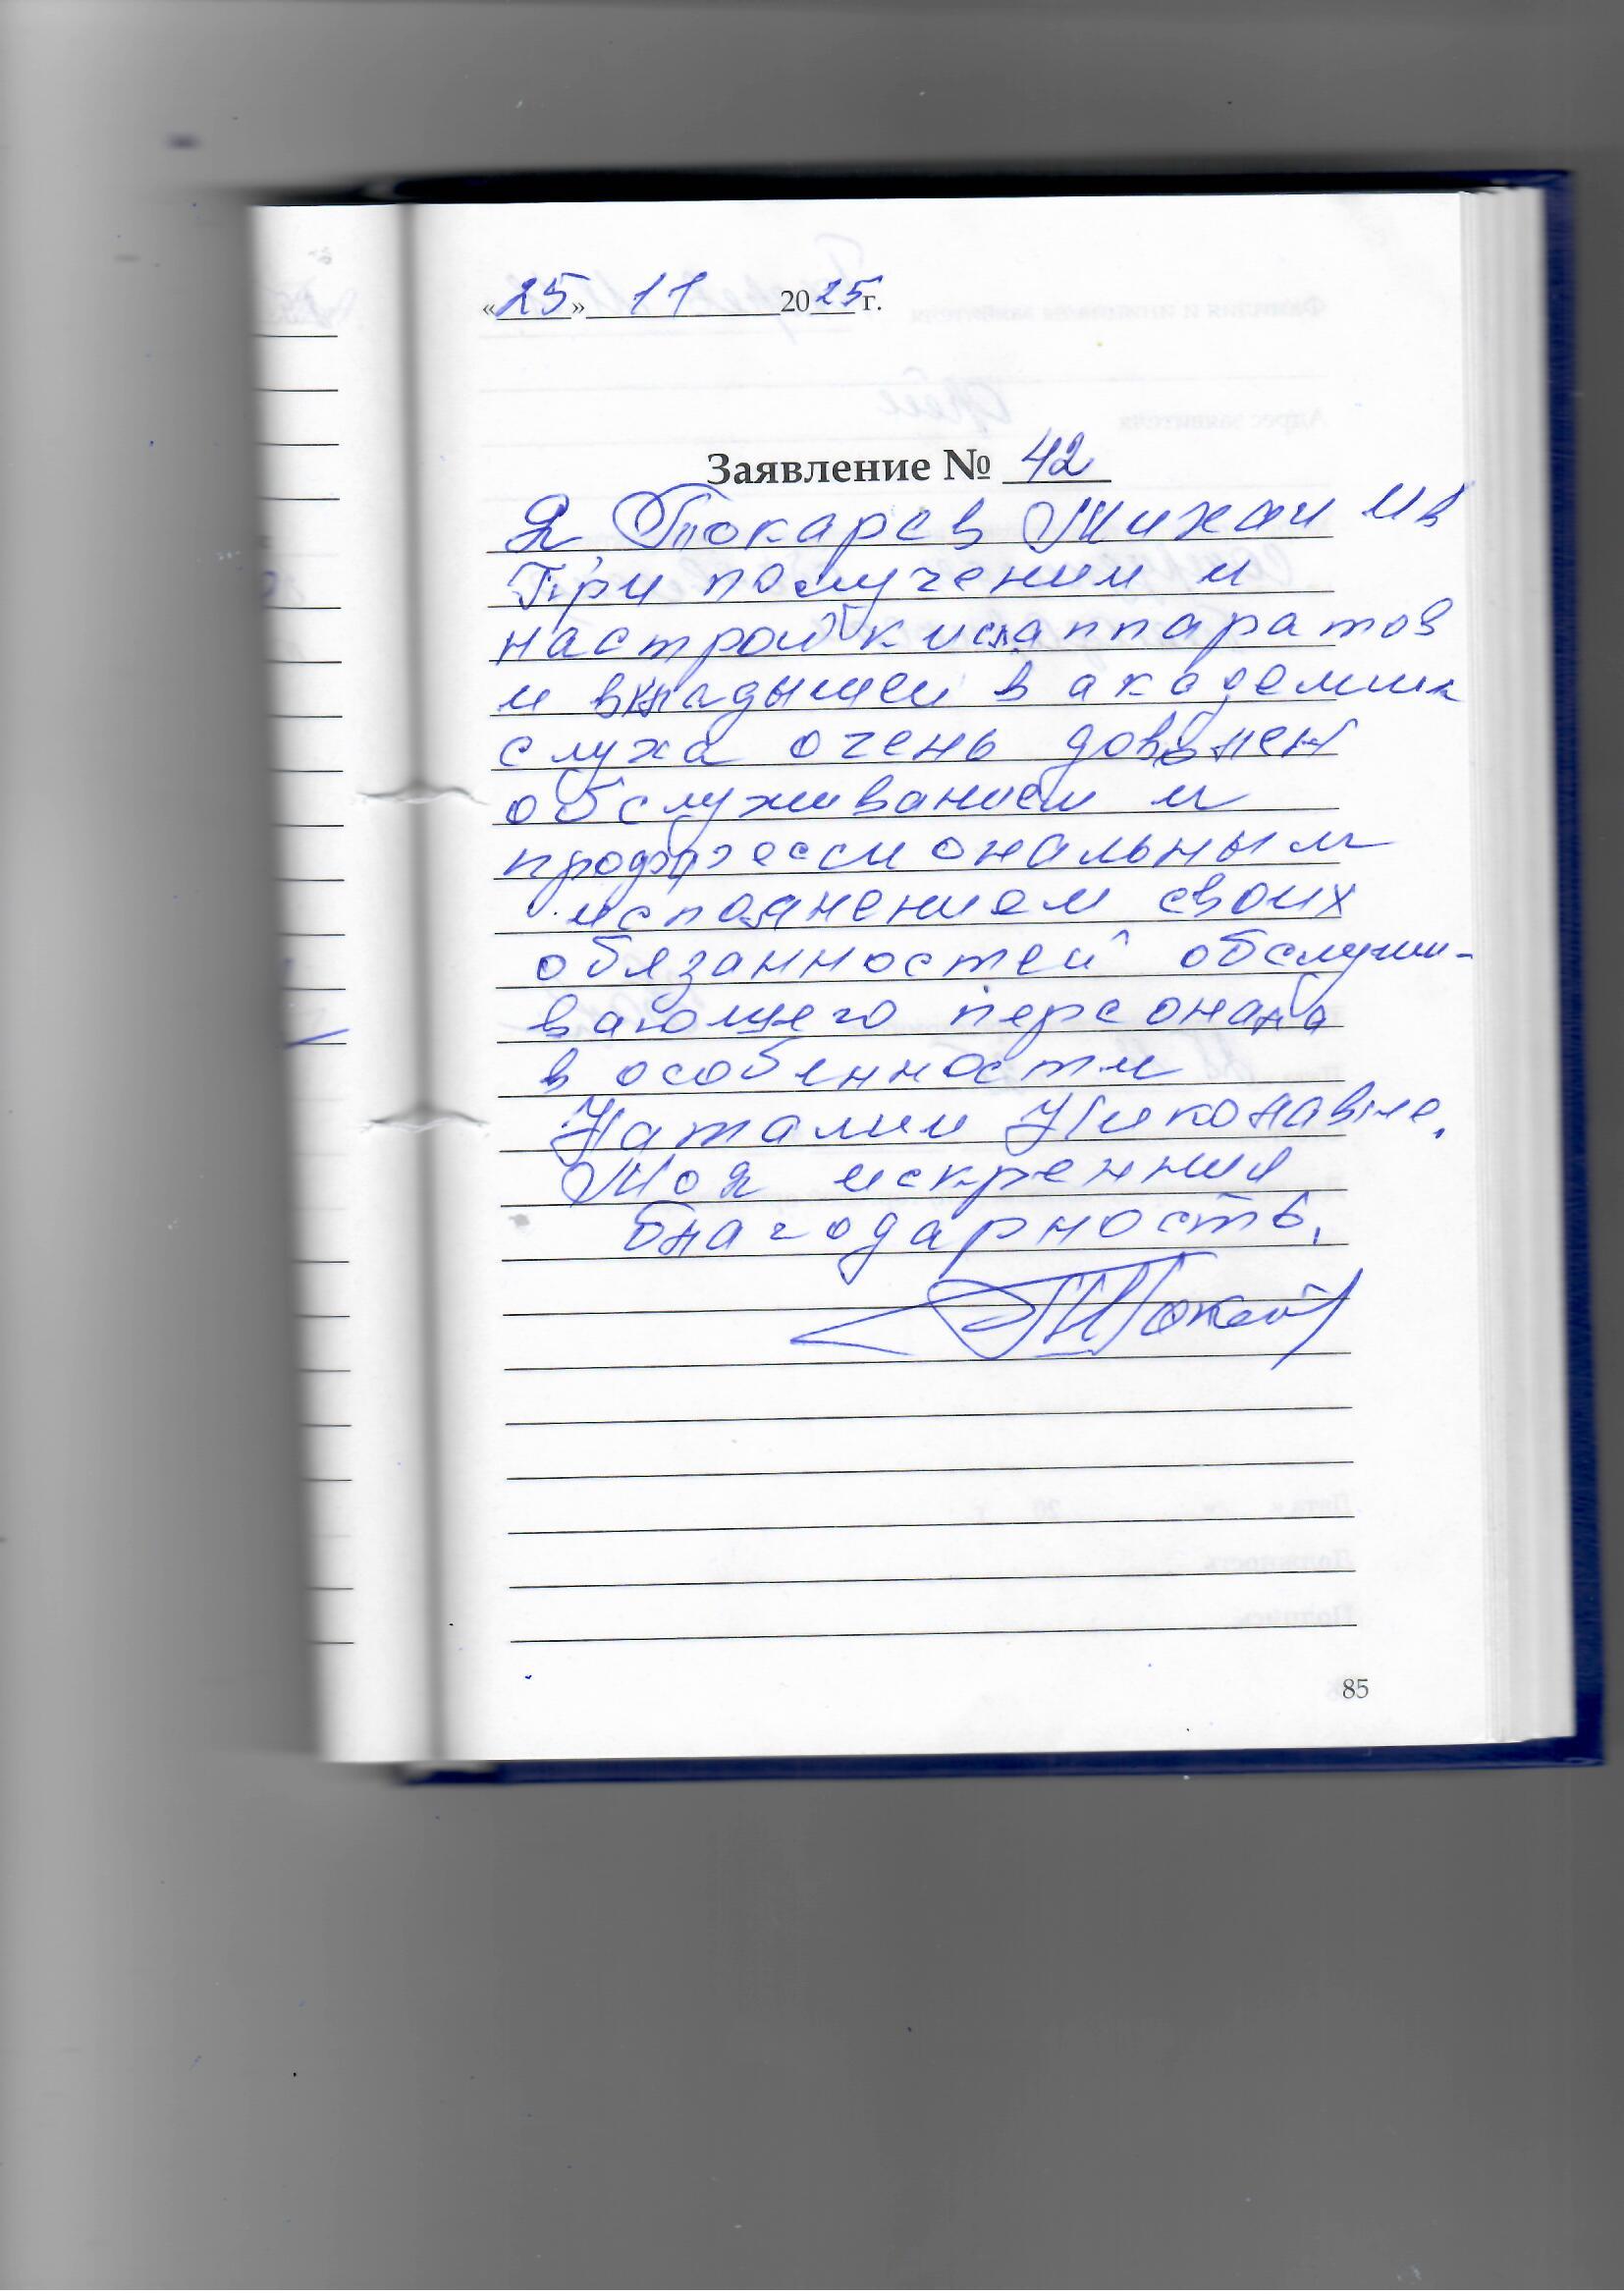 «25» 11 2025 г.
Заявление № 42
Я Токарев Михаил Ив
При получении и
настройки аппаратов
и вкладышей в академии
слуха очень доволен
обслуживанием и
профессиональным
исполнением своих
обязанностей обслужи-
вающего персонала
в особенности
Наталии Николавне.
Моя искренния
благодарность.
85